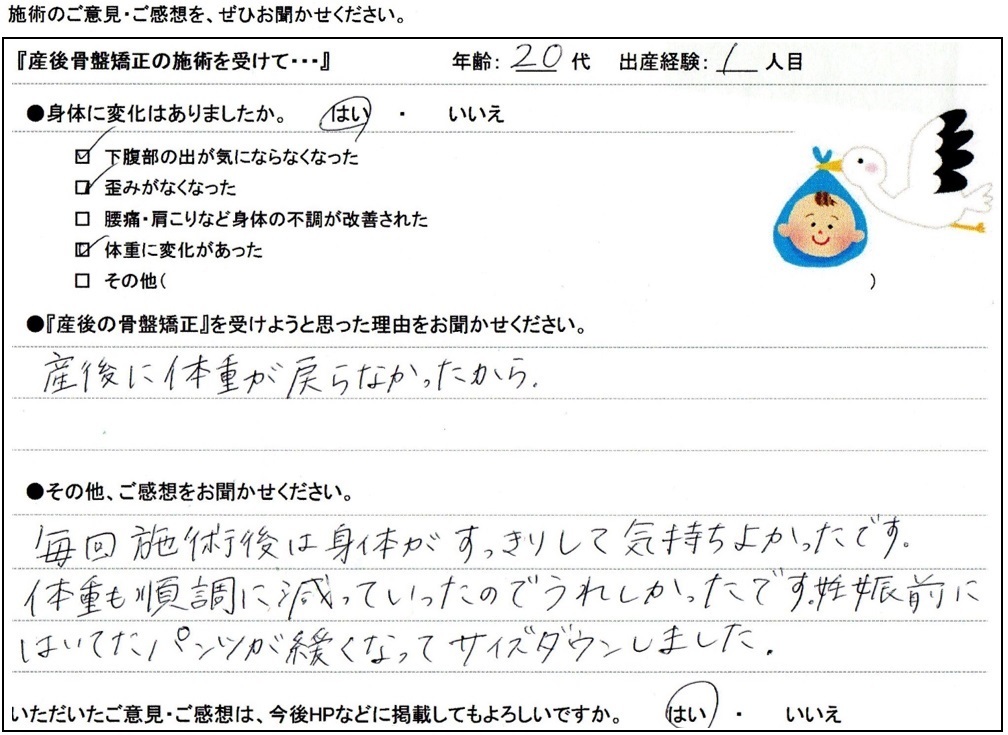 施術のご意見・ご感想を、ぜひお聞かせください。
『産後骨盤矯正の施術を受けて・・・』 年齢: 20 代 出産経験: 1 人目
●身体に変化はありましたか。 はい ・ いいえ
☑ 下腹部の出が気にならなくなった
☑ 歪みがなくなった
□ 腰痛・肩こりなど身体の不調が改善された
☑ 体重に変化があった
□ その他( )
●『産後の骨盤矯正』を受けようと思った理由をお聞かせください。
産後に体重が戻らなかったから.
●その他、ご感想をお聞かせください。
毎回施術後は身体がすっきりして気持ちよかったです。
体重も順調に減っていったのでうれしかったです。妊娠前に
はいてたパンツが緩くなってサイズダウンしました.
いただいたご意見・ご感想は、今後HPなどに掲載してもよろしいですか。 はい ・ いいえ